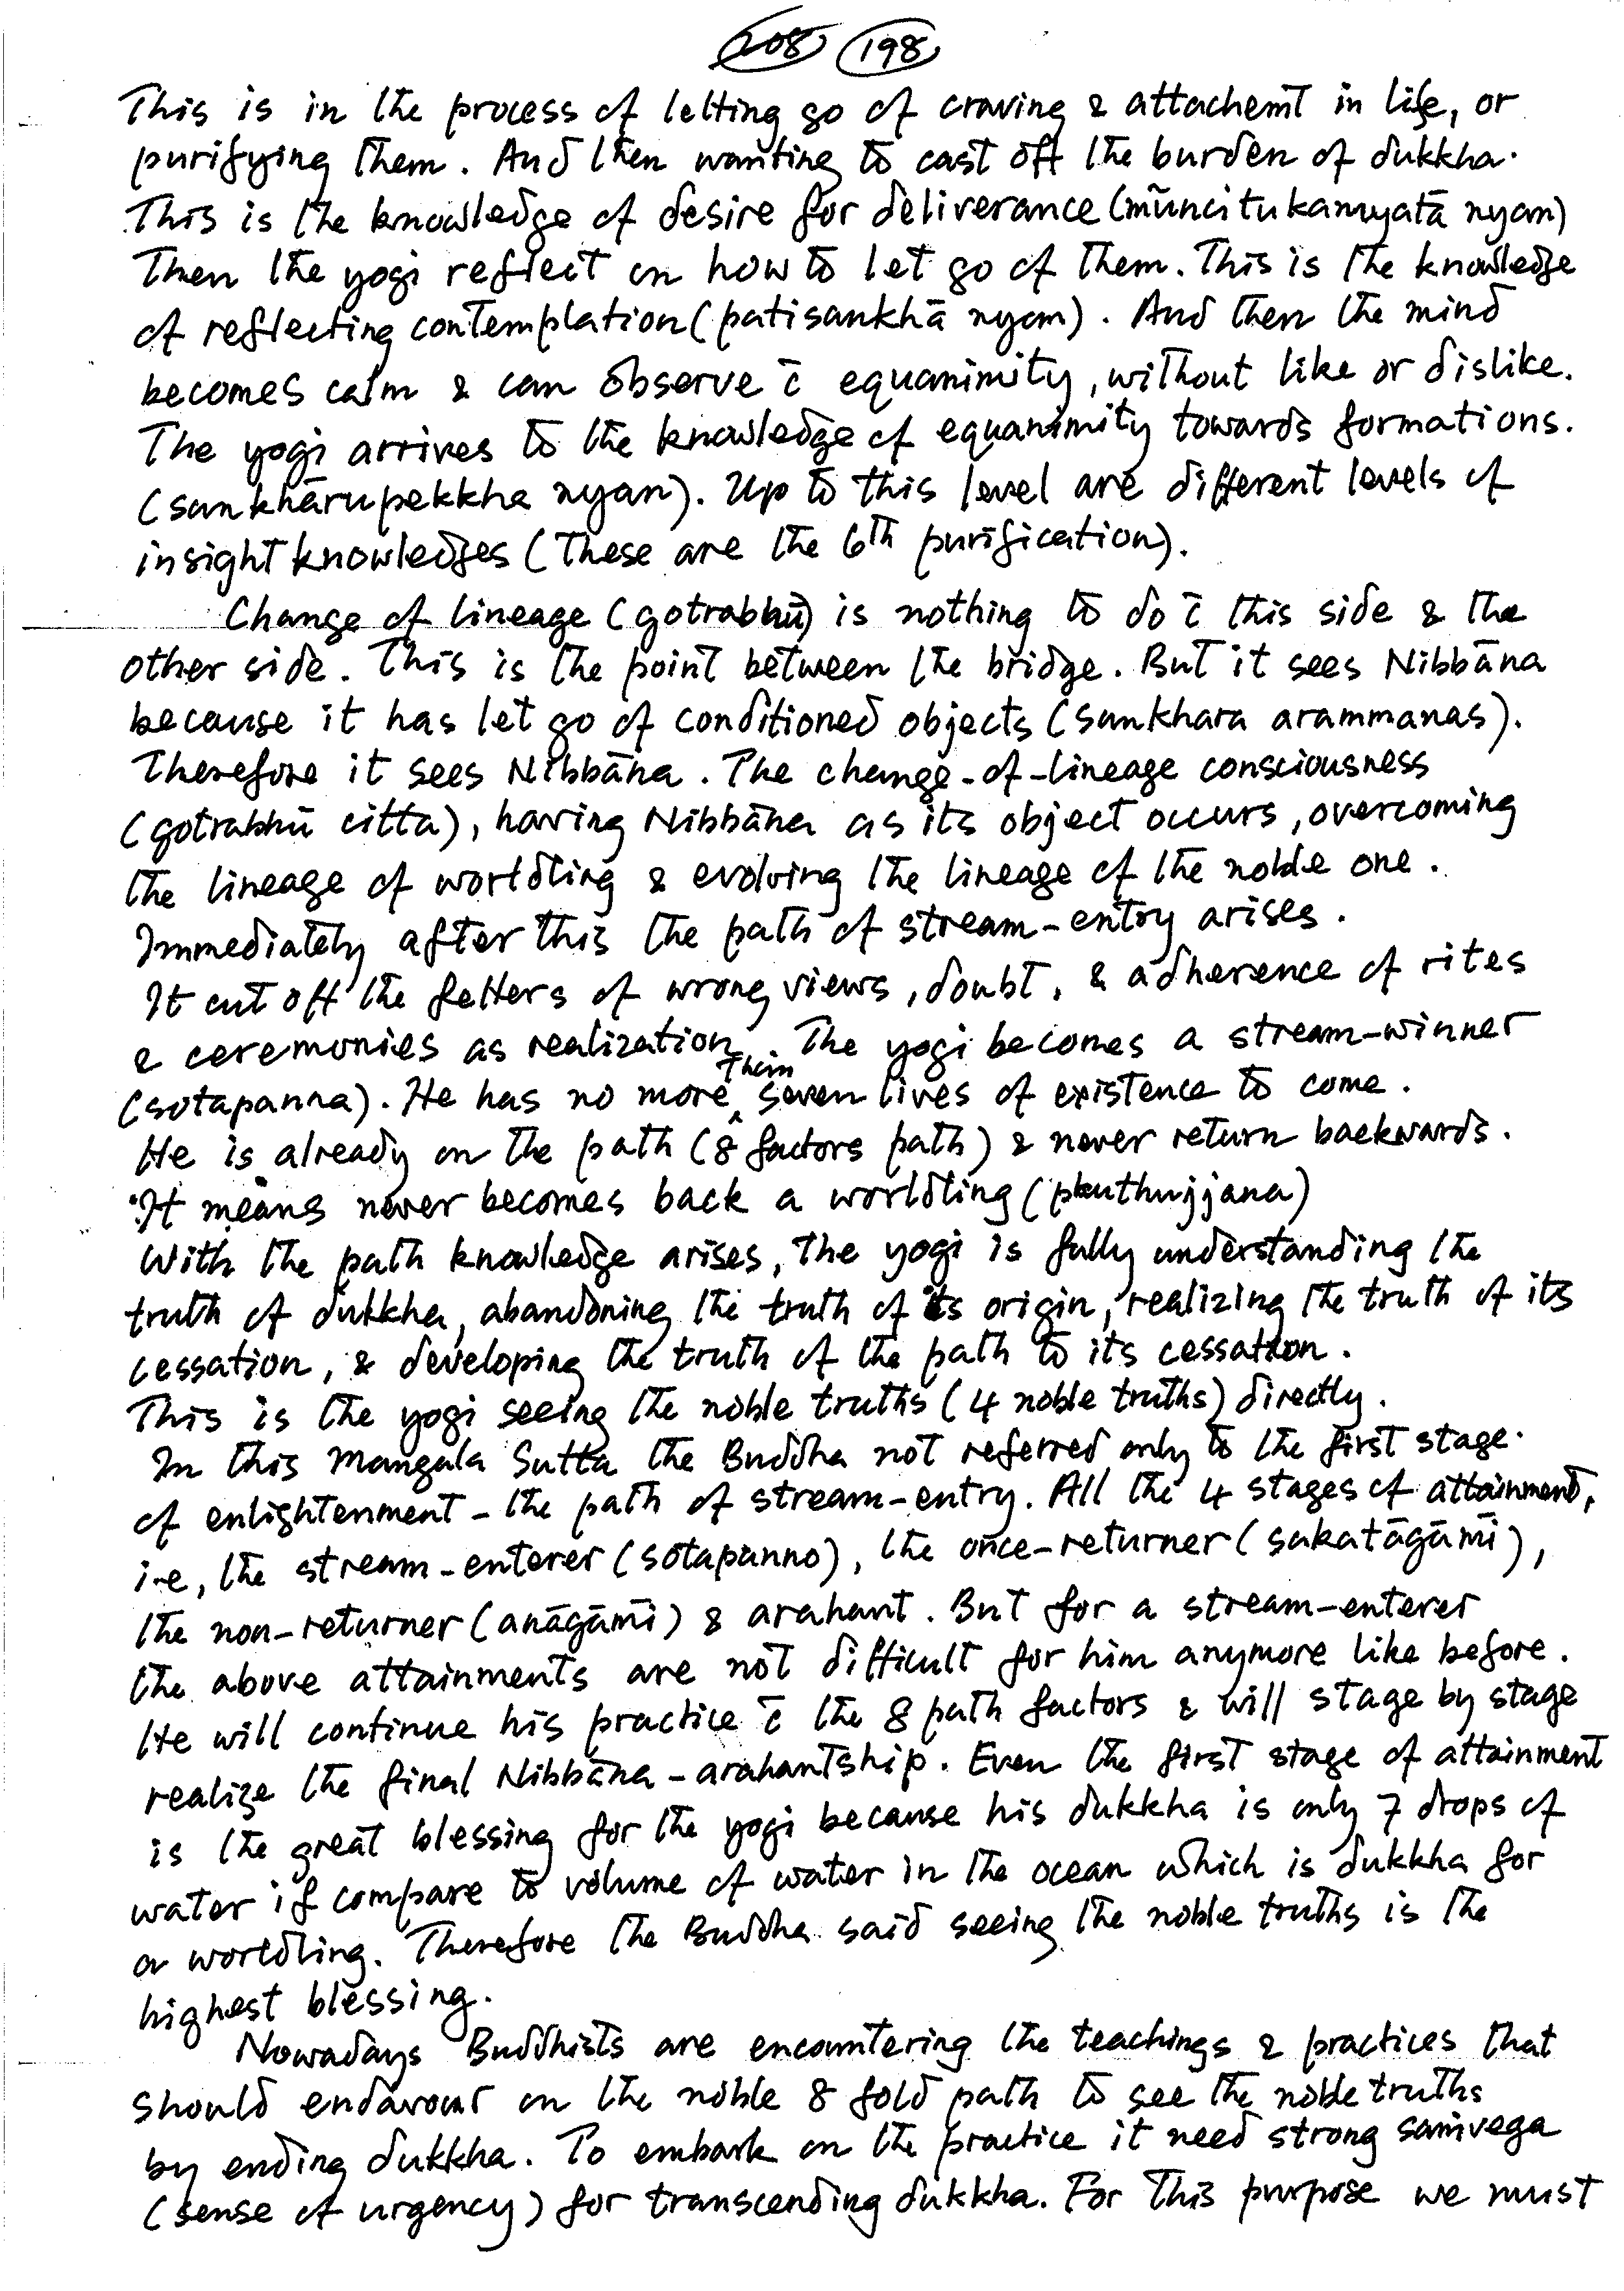 208 198
This is in the process of letting go of craving & attachemt in life, or
purifying them. And then wanting to cast off the burden of dukkha.
This is the knowledge of desire for deliverance (mũncitukamyatā nyan)
Then the yogi reflect on how to let go of them. This is the knowledge
of reflecting contemplation (patisankhā nyan). And then the mind
becomes calm & can observe c̄ equanimity, without like or dislike.
The yogi arrives to the knowledge of equanimity towards formations.
(sankhārupekkha nyan). Up to this level are different levels of
insight knowledges (These are the 6th purification).
Change of lineage (gotrabhū) is nothing to do c̄ this side & the
other side. This is the point between the bridge. But it sees Nibbāna
because it has let go of conditioned objects (sankhara arammanas).
Therefore it sees Nibbāna. The change-of-lineage consciousness
(gotrabhū citta), having Nibbāna as its object occurs, overcoming
the lineage of worldling & evolving the lineage of the noble one.
Immediately after this the path of stream-entry arises.
It cut off the fetters of wrong views, doubt, & adherence of rites
& ceremonies as realization. The yogi becomes a stream-winner
(sotapanna). He has no more than seven lives of existence to come.
He is already on the path (8 factors path) & never return backwards.
It means never becomes back a worldling (puthujjana)
With the path knowledge arises, the yogi is fully understanding the
truth of dukkha, abandoning the truth of its origin, realizing the truth of its
cessation, & developing the truth of the path to its cessation.
This is the yogi seeing the noble truths (4 noble truths) directly.
In this Mangala Sutta the Buddha not referred only to the first stage
of enlightenment - the path of stream-entry. All the 4 stages of attainment,
i.e, the stream-enterer (sotapanno), the once-returner (sakatāgāmī),
the non-returner (anāgāmī) & arahant. But for a stream-enterer
the above attainments are not difficult for him anymore like before.
He will continue his practice c̄ the 8 path factors & will stage by stage
realize the final Nibbāna - arahantship. Even the first stage of attainment
is the great blessing for the yogi because his dukkha is only 7 drops of
water if compare to volume of water in the ocean which is dukkha for
a worldling. Therefore the Buddha said seeing the noble truths is the
highest blessing.
Nowadays Buddhists are encountering the teachings & practices that
should endavour on the noble 8 fold path to see the noble truths
by ending dukkha. To embark on the practice it need strong saṁvega
(sense of urgency) for transcending dukkha. For this purpose we must